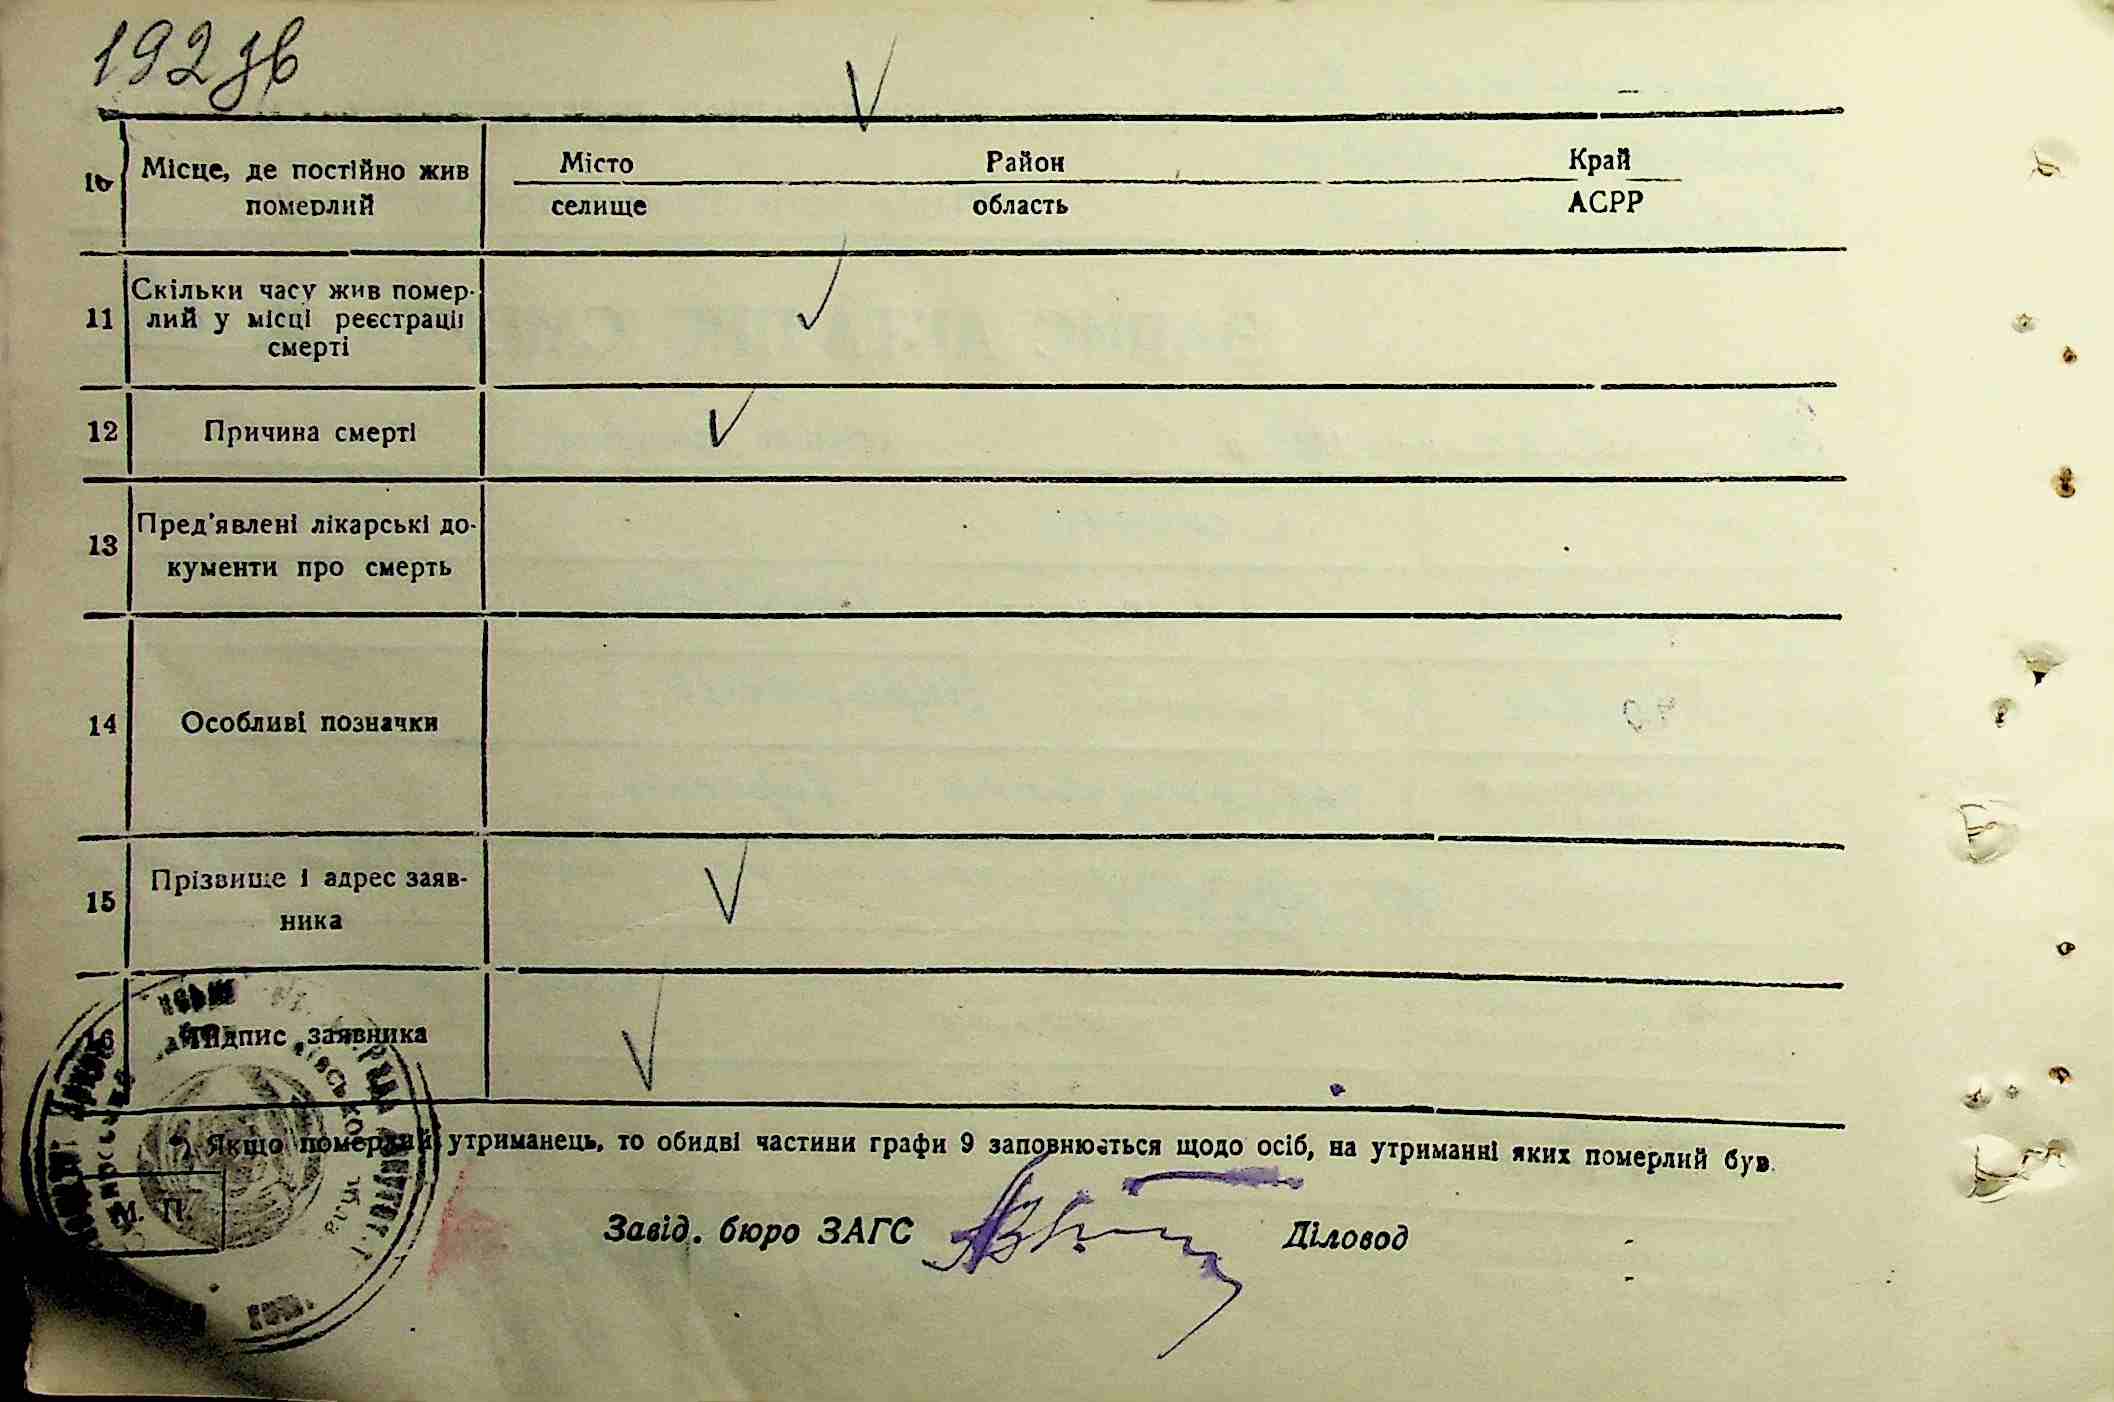 192 зв
10 Місце, де постійно жив
померлий
Місто Район Край
селище область АСРР
11 Скільки часу жив помер-
лий у місці реєстрації
смерті
12 Причина смерті
13 Пред'явлені лікарські до-
кументи про смерть
14 Особливі позначки
15 Прізвище і адрес заяв-
ника
16 Підпис заявника
*) Якщо померлий утриманець, то обидві частини графи 9 заповнюється щодо осіб, на утриманні яких померлий був.
М. П.
Завід. бюро ЗАГС Діловод